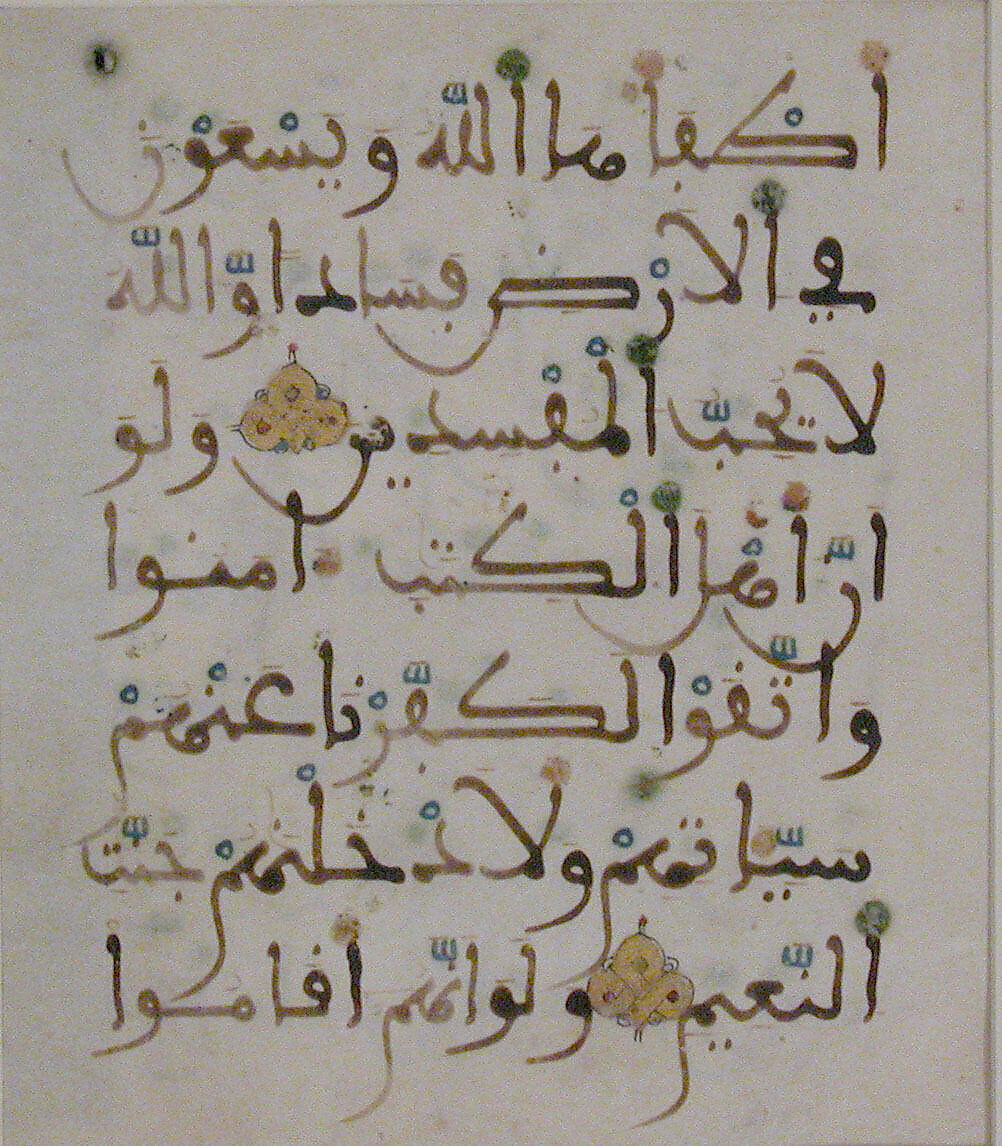 اطفاها الله ويسعون
في الارض فسادا والله
لا يحب المفسدين ولو
ان اهل الكتب امنوا
واتقوا لكفرنا عنهم
سياتهم ولادخلنهم جنت
النعيم ولو انهم اقاموا